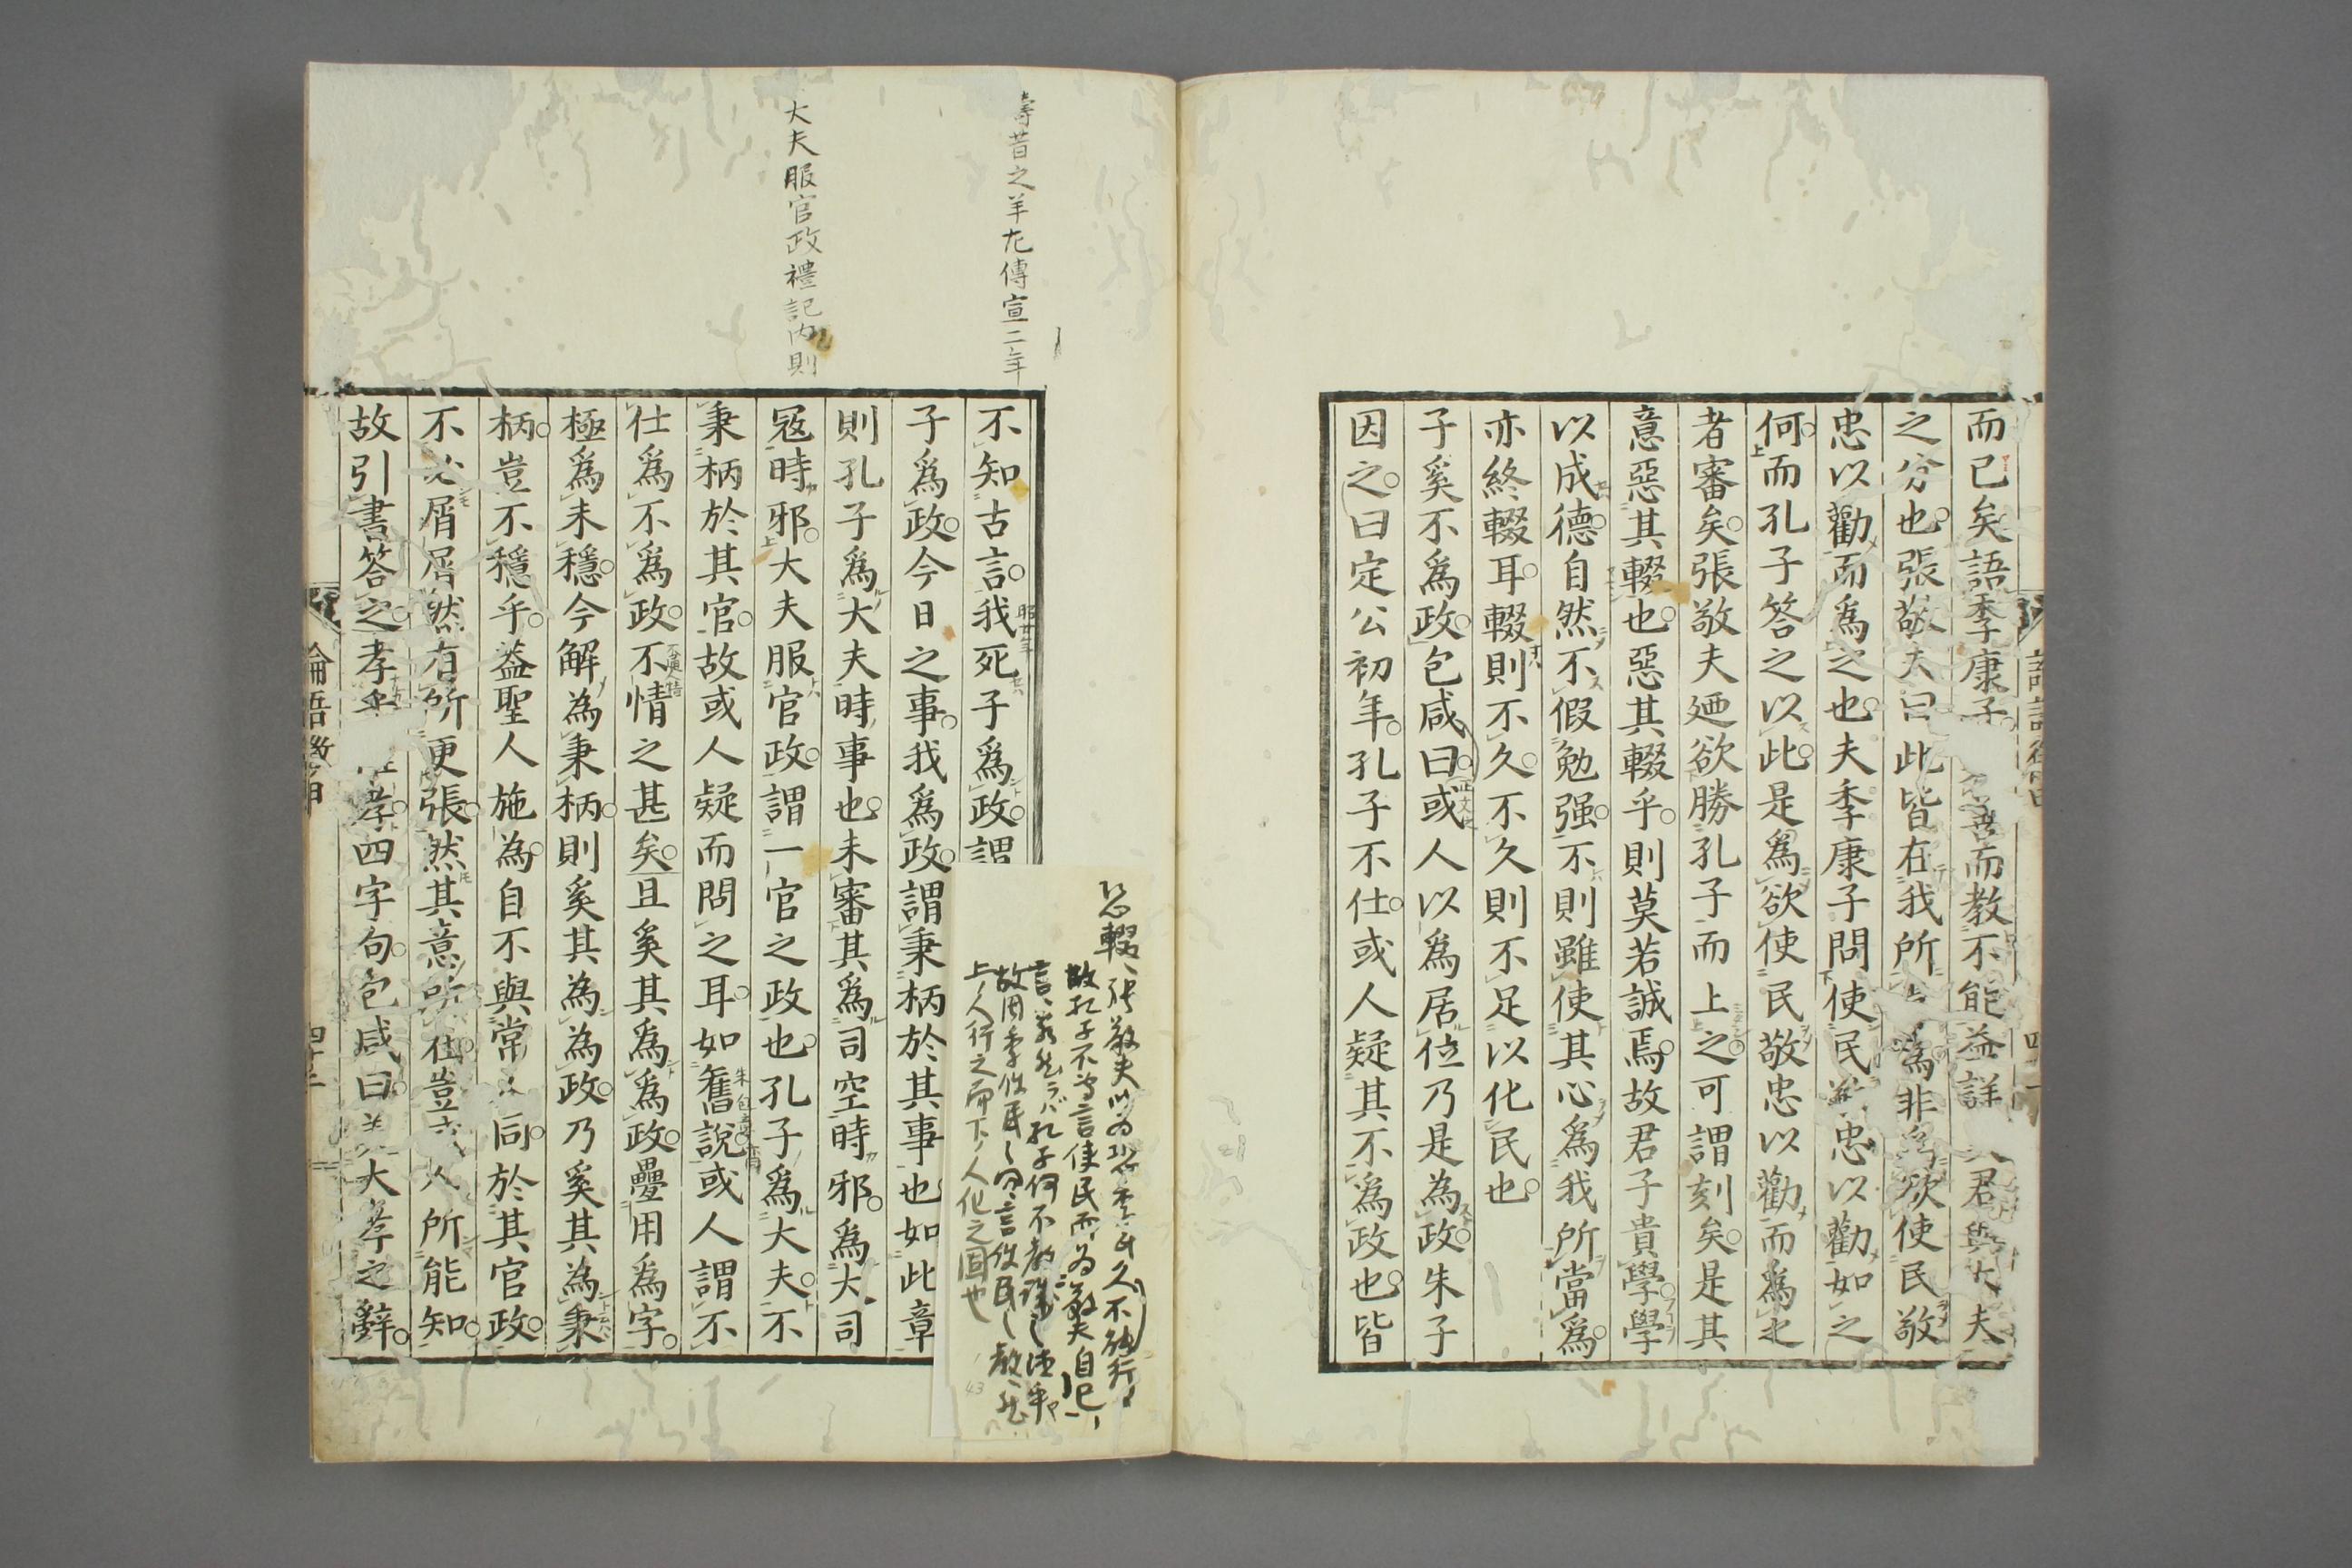 而已矣語季康子善而教不能益詳君與大夫
之分也張敬夫曰此皆在我所爲非爲欲使民敬
忠以勸而爲之也夫季康子問使民敬忠以勸如之
何而孔子答之以此是爲欲使民敬忠以勸而爲之
者審矣張敬夫廼欲勝孔子而上之可謂刻矣是其
意惡其輟也惡其輟乎則莫若誠焉故君子貴學學
以成德自然不假勉强不則雖使其心爲我所當爲
亦終輟耳輟則不久不久則不足以化民也
子奚不爲政包咸曰或人以爲居位乃是為政朱子
因之曰定公初年孔子不仕或人疑其不爲政也皆
不知古言我死子爲政謂
子爲政今日之事我爲政謂秉柄於其事也如此章
則孔子爲大夫時事也未審其爲司空時邪爲大司
寇時邪大夫服官政謂一官之政也孔子爲大夫不
秉柄於其官故或人疑而問之耳如舊說或人謂不
仕爲不爲政不情之甚矣且奚其爲爲政疊用為字
極爲未穩今解為秉柄則奚其為為政乃奚其為秉
柄豈不穩乎蓋聖人施為自不與常人同於其官政
不必屑屑然有所更張然其意所在豈或人所能知
故引書答之孝乎惟孝四字句包咸曰美大孝之辭
論語徵甲
疇昔之羊左傳宣二年
大夫服官政禮記内則
恐輟張敬夫以為恐季氏久不能行
故孔子不當言使民而為敬夫自己
故因季使民之問言使民之教
上ノ人行之而下ノ人化之固也